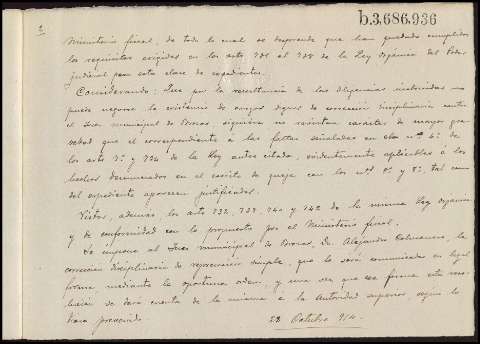 b.3,686,936
2
Ministerio fiscal; de todo lo cual se desprende que han quedado cumplidos
los requisitos exigidos en los arts 731 al 738 de la Ley orgánica del Poder
judicial para esta clase de expedientes.
Considerando: Que por la resultancia de las diligencias instruidas no
puede negarse la existencia de cargos dignos de corrección disciplinaria contra
el Juez municipal de siquiera no revistan caracter de mayor gra-
vedad que el correspondiente á las faltas señaladas en el nº 4º de
los arts y 734 de la ley antes citada, evidentemente aplicables á los
hechos denunciados en el escrito de queja con los nos y tal como
del expediente aparecen justificados.
Vistos, ademas, los arts 732, 738, 741 y 742 de la misma Ley organica
y de conformidad con lo propuesto por el Ministerio fiscal.
Se impone al Juez municipal de Dn. Alejandro la
corrección disciplinaria de reprensión simple, que le será comunicada en legal
forma mediante la oportuna orden, y una vez que sea firme esta reso-
lución se dará cuenta de la misma a la Autoridad superior, según lo
tiene prevenido.
28 Octubre 914.